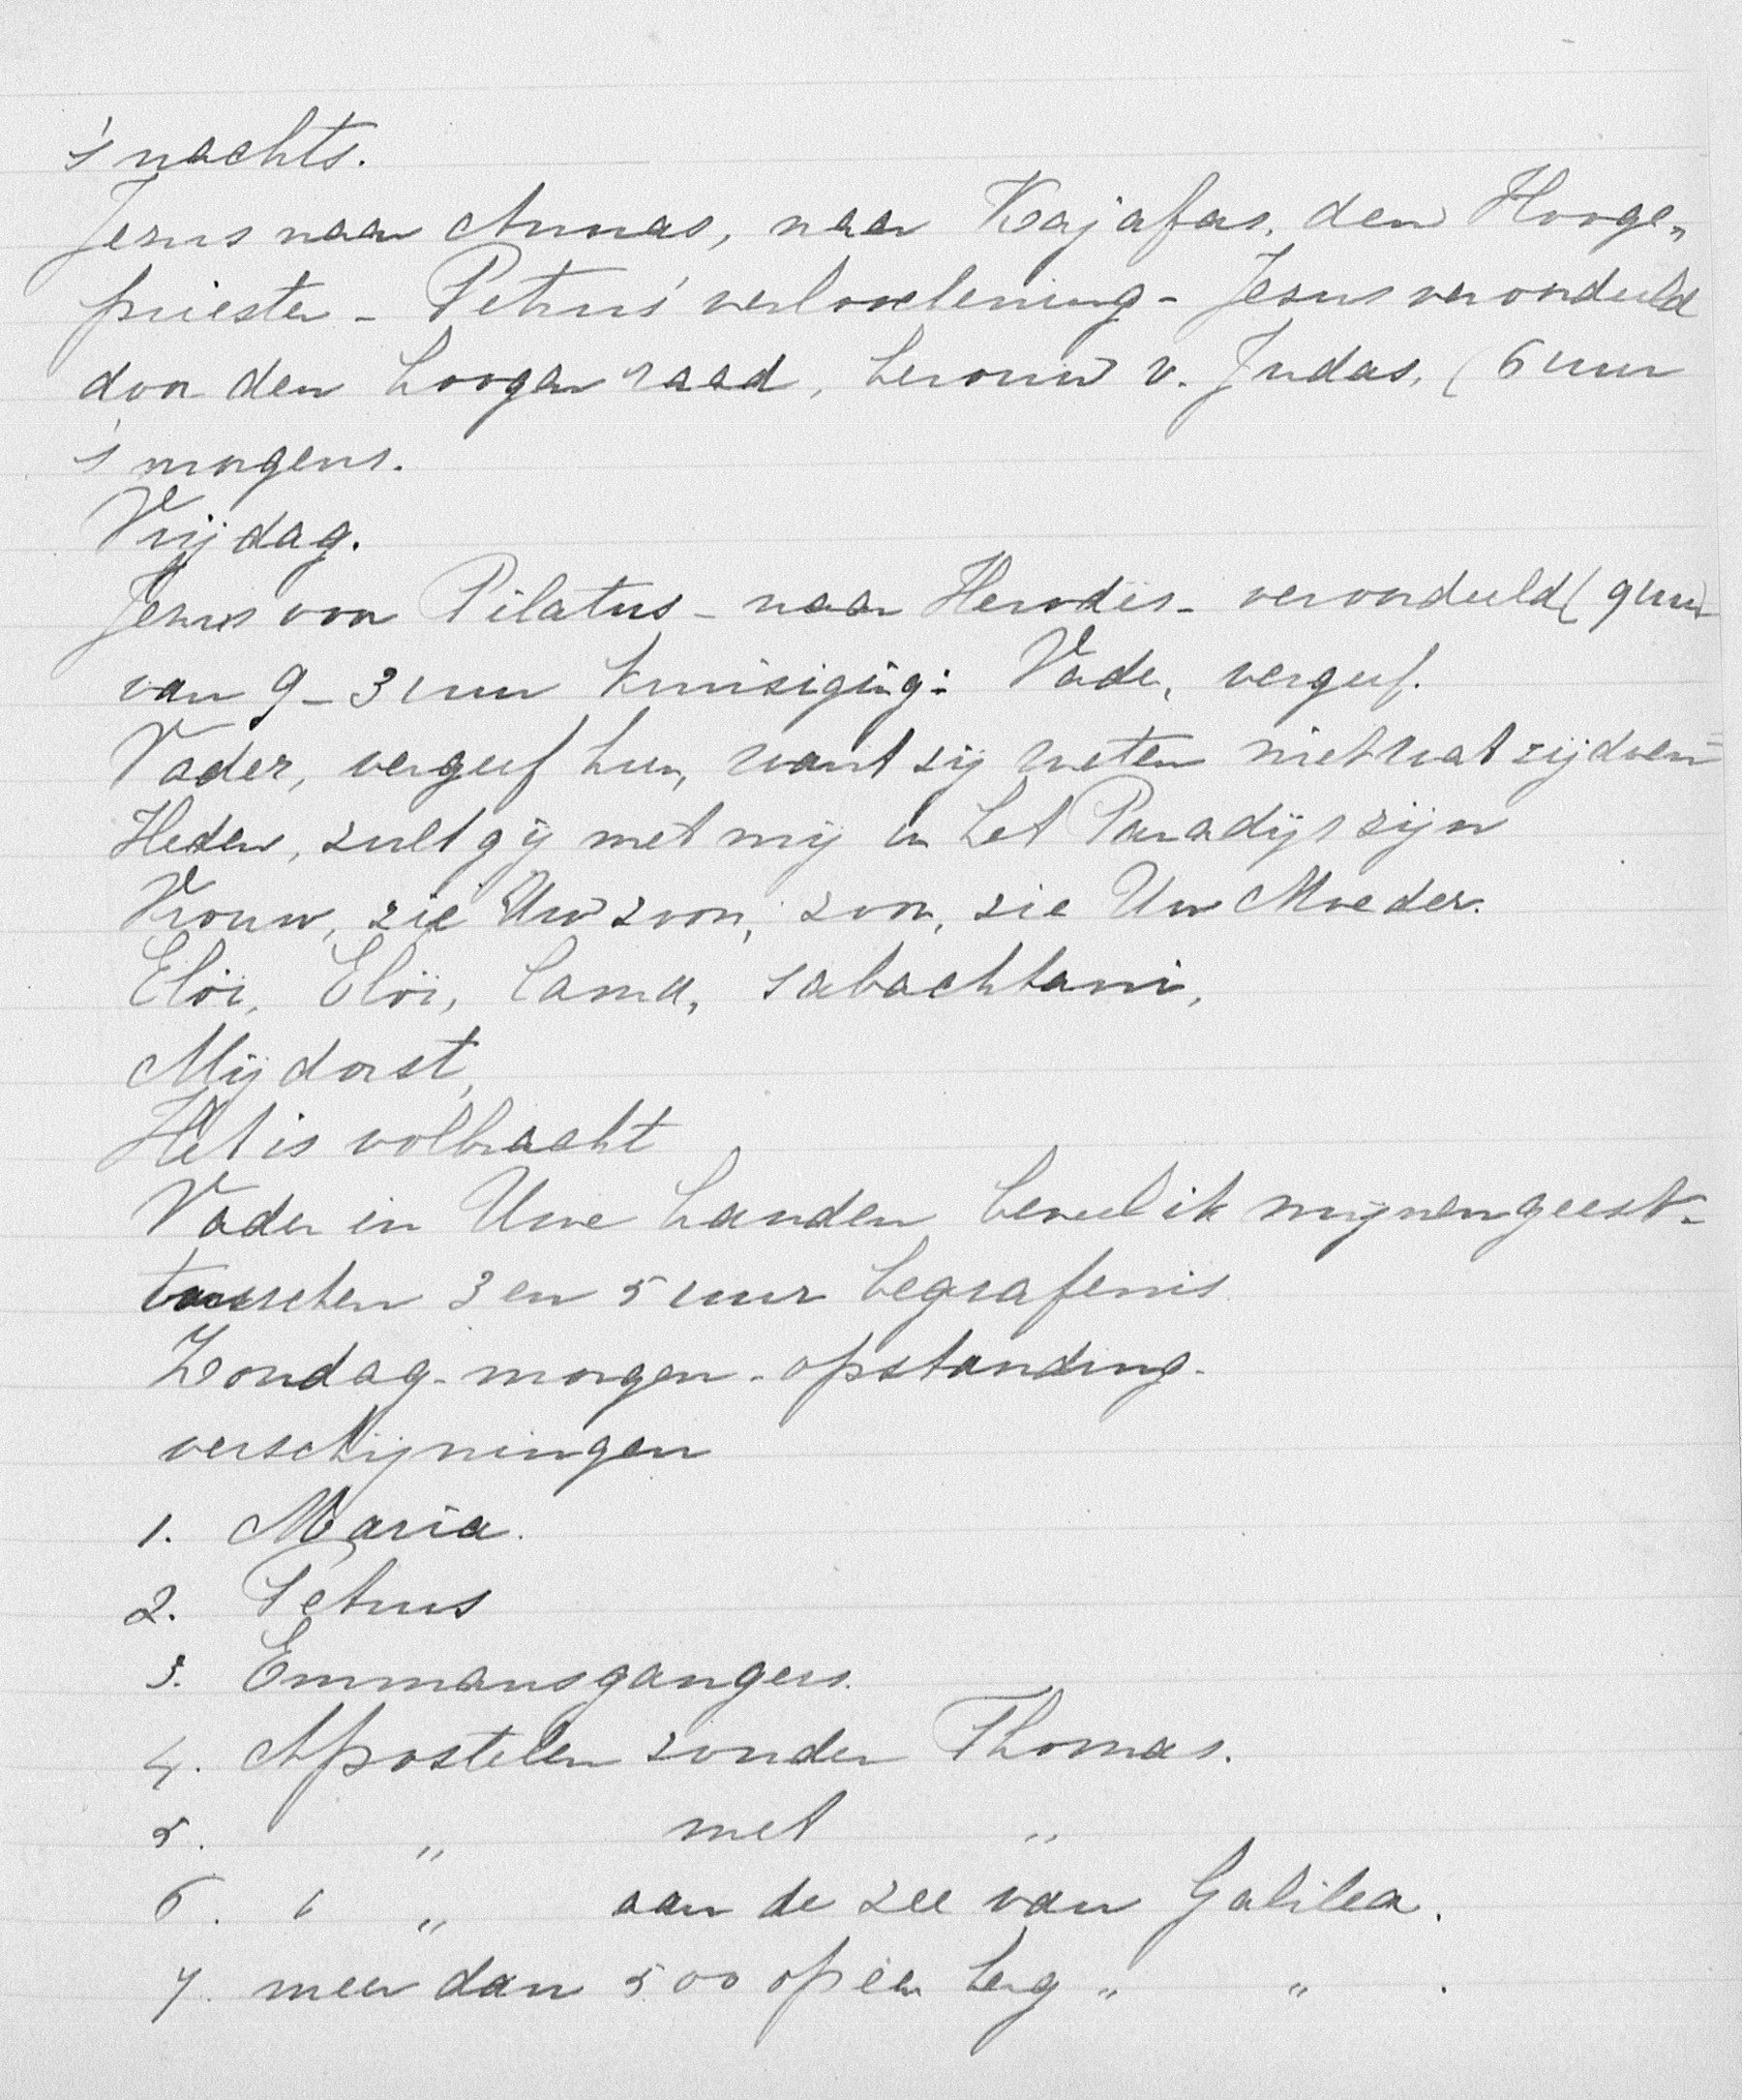 's nachts.
Jezus naar Annas, naar Kajafas, den Hooge„
priester - Petrus' verloochening - Jezus veroordeeld
door den hoogen raad, berouw v. Judas, (6 uur
's morgens.
Vrijdag.
Jezus voor Pilatus - naar Herodes - veroordeeld (9 uur
van 9 - 3 uur kruisiging: Vader, vergeef.
Vader, vergeef hun, want zij weten niet wat zij doen
Heden, zult gij met mij in het Paradijs zijn
Vrouw, zie Uw zoon, zoon, zie Uw Moeder.
Eloï, Eloï, lama, sabachtani,
Mij dorst,
Het is volbracht
Vader in Uwe handen beveel ik mijnen geest.
tusschen 3 en 5 uur begrafenis.
Zondag-morgen - opstanding.
verschijningen
1. Maria.
2. Petrus
3. Emmausgangers.
4. Apostelen zonder Thomas.
5. „ met „
6. „ aan de zee van Galilea.
7. meer dan 500 op een berg „ „ .